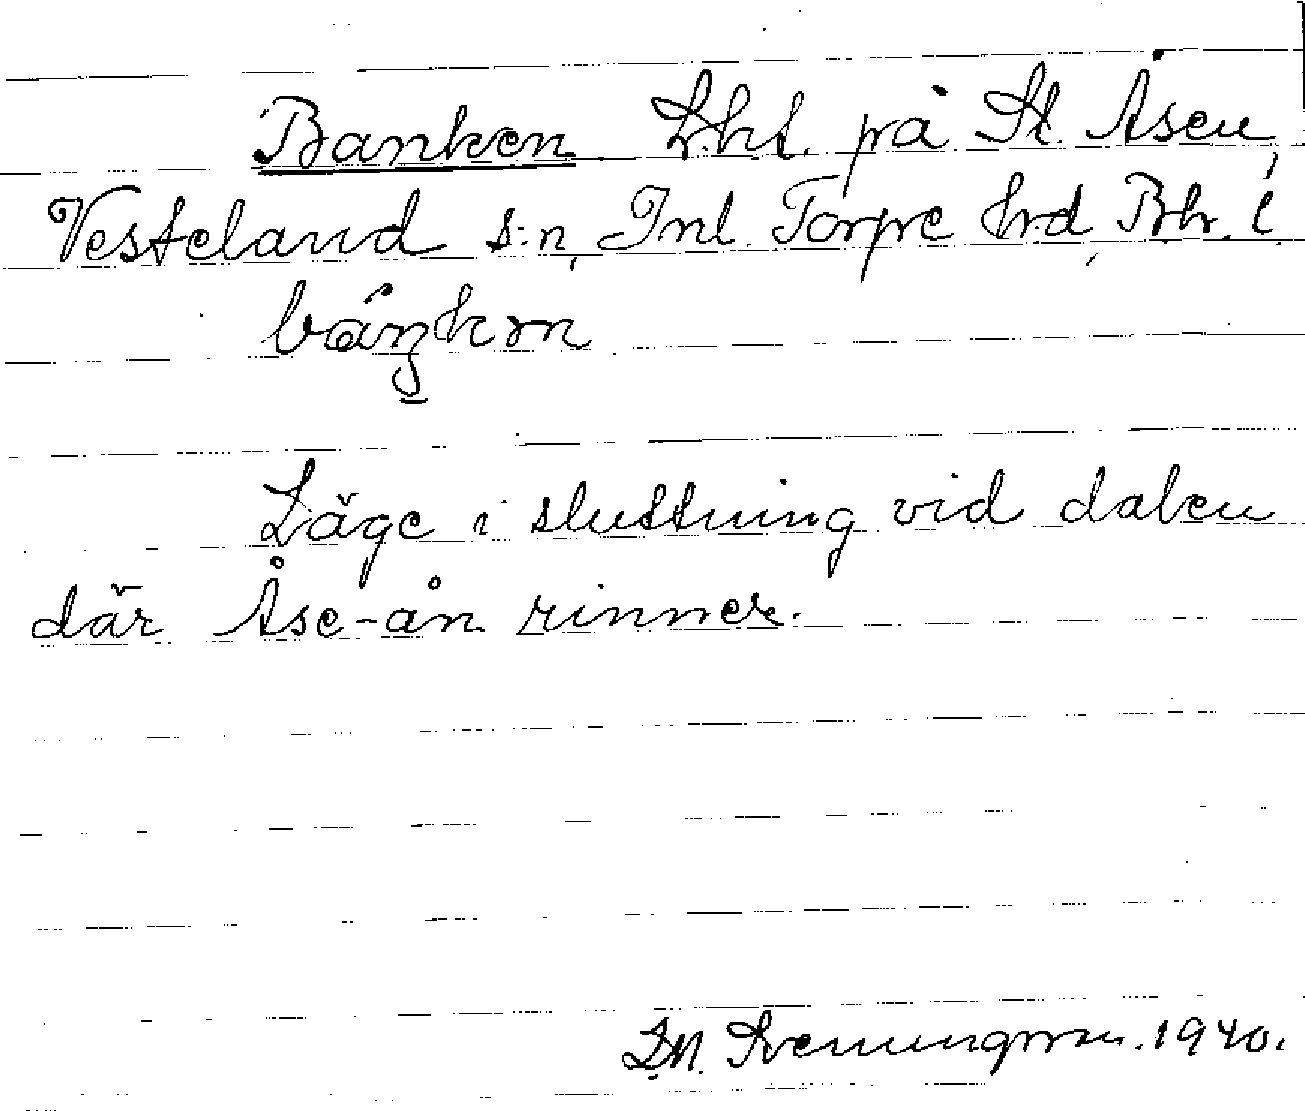 Banken L.ht. på St. Åsen,
Vesteland s:n, Inl. Torpe hrd, Bh. l.
Läge i sluttning vid dalen
där Åse-ån rinner.
D.N. Svenungsson. 1940.